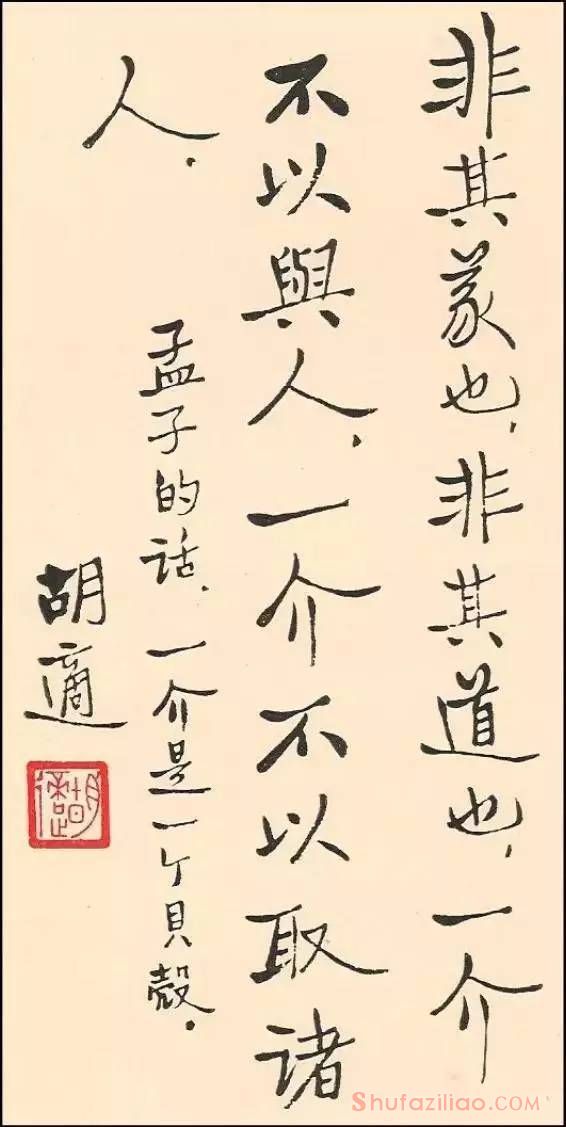 非其義也，非其道也，一介
不以與人，一介不以取諸
人．
孟子的話，一介是一个貝殼．
胡適
胡適
Shufaziliao.COM